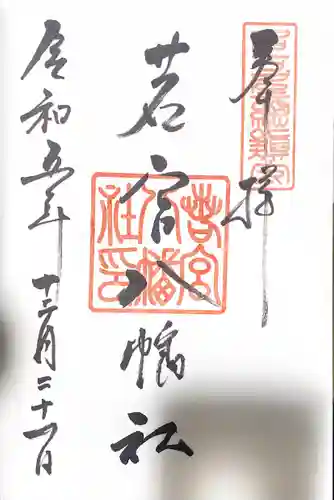 奉拝
若宮八幡社
令和五年十二月三十一日
若宮
八幡
社印